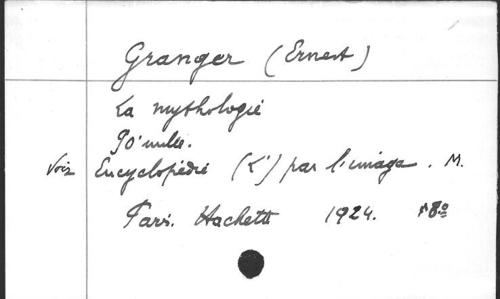 Granger (Ernest)
La mythologie
90e mille.
Voir Encyclopédie (L') par l'image. M.
Paris. Hachette 1924. 8º